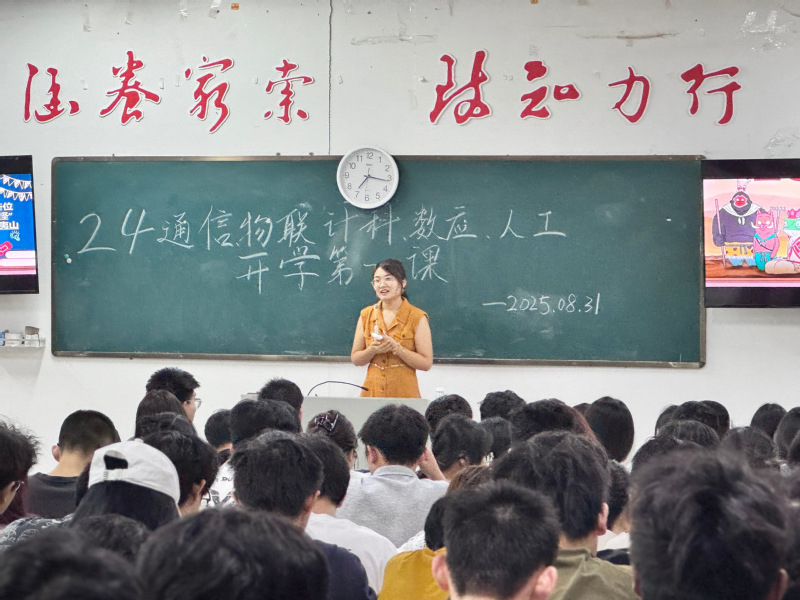 涵養窮索 致知力行
24通信、物联、计科、数应、人工
开学第一课
—2025.08.31